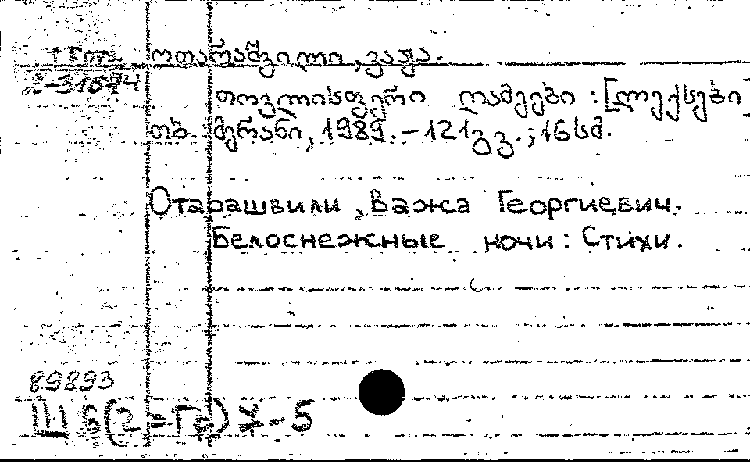 ოთარაშვილი, ვაჟა.
თოვლისფერი ღამეები : [ლექსები]
თბ. მერანი, 1989. – 121გვ.; 16სმ.
Отарашвили, Важа Георгиевич.
Белоснежные ночи: Стихи.
89893